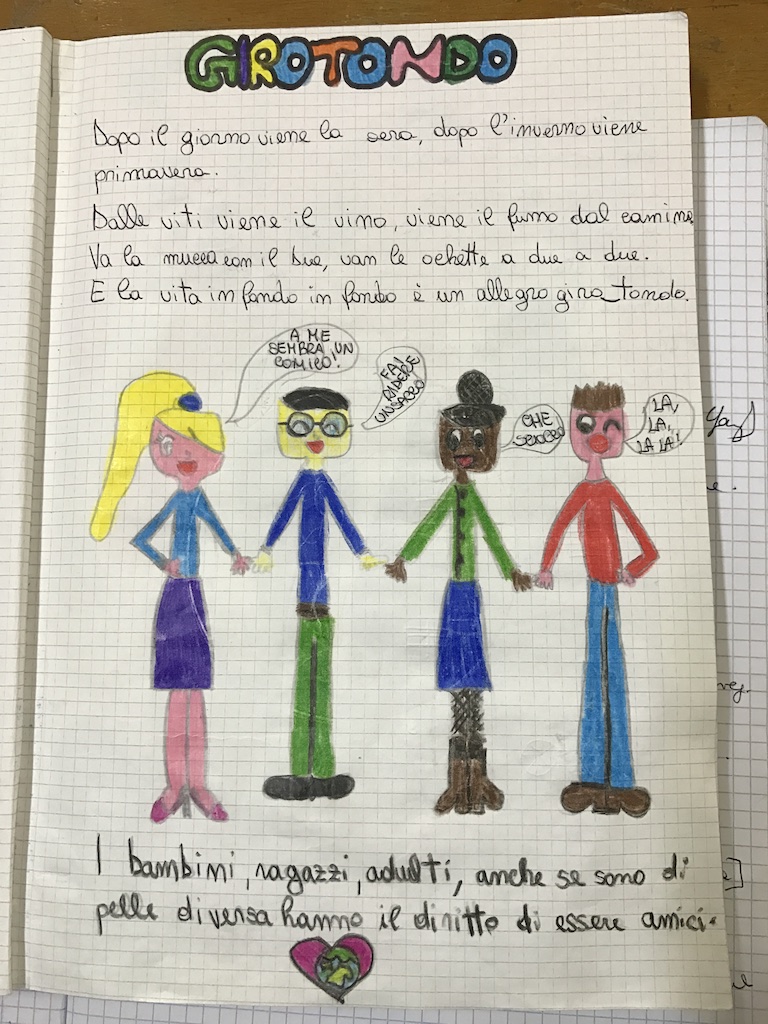 GIROTONDO
Dopo il giorno viene la sera, dopo l'inverno viene
primavera.
Dalle viti viene il vino, viene il fumo dal camino
Va la mucca con il bue, van le ochette a due a due.
E la vita in fondo in fondo è un allegro giro_tondo.
A ME
SEMBRA UN
COMICO!
FA!
RIDERE
UN SACCO
CHE
LA,
LA,
LA LA!
I bambini, ragazzi, adulti, anche se sono di
pelle diversa hanno il diritto di essere amici.